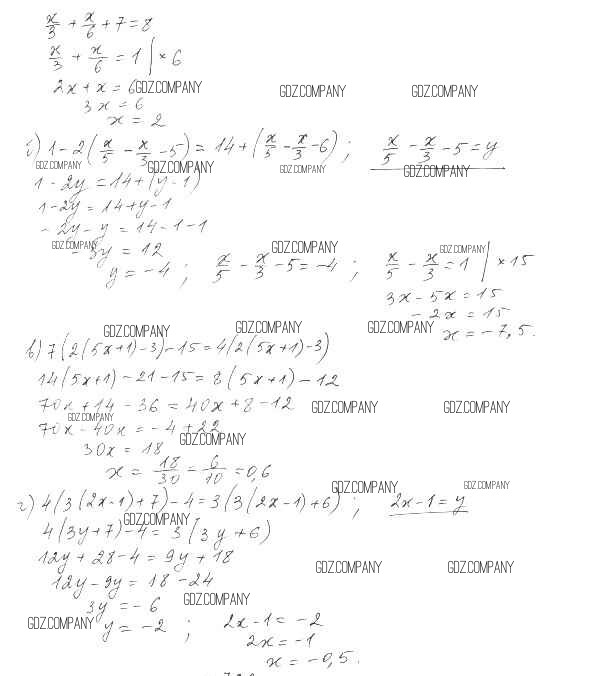 x/3 + x/6 + 7 = 8
x/3 + x/6 = 1 | * 6
2x + x = 6 GDZ.COMPANY GDZ.COMPANY GDZ.COMPANY
3x = 6
x = 2
б) 1 - 2(x/5 - x/3 - 5) = 14 + (x/5 - x/3 - 6) ; x/5 - x/3 - 5 = y
GDZ.COMPANY GDZ.COMPANY GDZ.COMPANY GDZ.COMPANY
1 - 2y = 14 + (y - 1)
1 - 2y = 14 + y - 1
- 2y - y = 14 - 1 - 1
GDZ.COMPANY GDZ.COMPANY GDZ.COMPANY
- 3y = 12
y = -4 ; x/5 - x/3 - 5 = -4 ; x/5 - x/3 = 1 | * 15
3x - 5x = 15
- 2x = 15
GDZ.COMPANY GDZ.COMPANY GDZ.COMPANY
x = -7,5.
в) 7(2(5x+1)-3)-15 = 4(2(5x+1)-3)
14(5x+1) - 21 - 15 = 8(5x+1) - 12
70x + 14 - 36 = 40x + 8 - 12 GDZ.COMPANY GDZ.COMPANY
GDZ.COMPANY
70x - 40x = -4 + 22
30x = 18 GDZ.COMPANY
x = 18/30 = 6/10 = 0,6
GDZ.COMPANY GDZ.COMPANY
г) 4(3(2x-1)+7)-4 = 3(3(2x-1)+6) ; 2x-1 = y
GDZ.COMPANY
4(3y+7)-4 = 3(3y+6)
12y + 28 - 4 = 9y + 18
GDZ.COMPANY GDZ.COMPANY
12y - 9y = 18 - 24
3y = -6 GDZ.COMPANY
GDZ.COMPANY y = -2 ; 2x - 1 = -2
2x = -1
x = -0,5.